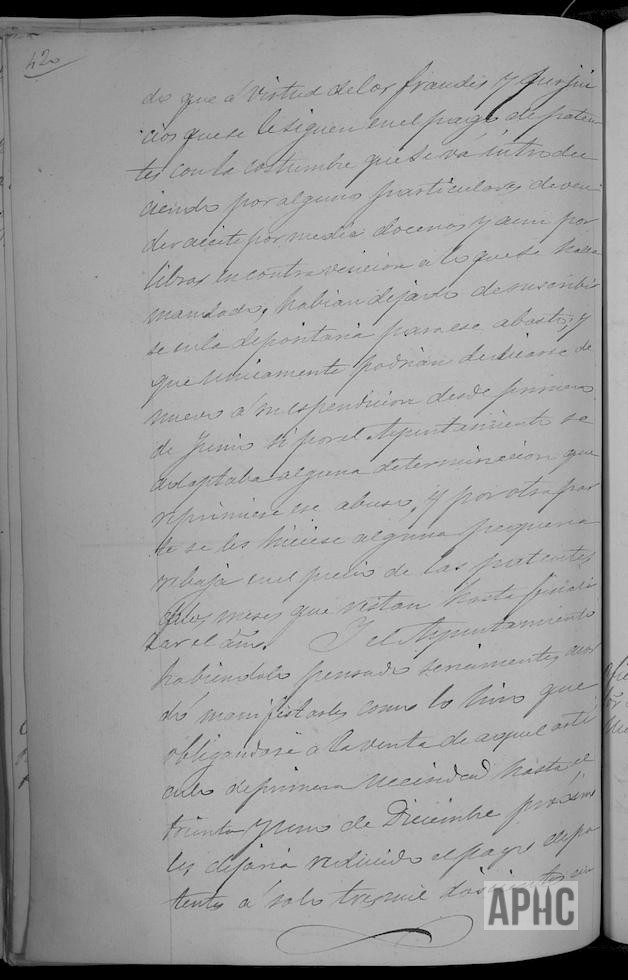 42
do que á virtud de los fraudes y perjui
cios que se le siguen en el pago de paten
tes con la costumbre que se vá introdu
ciendo por algunos particulares de ven
der aceite por media docenas y aun por
libras en contravencion a lo que se halla
mandado, habian dejado de suscribir
se en la depositaria para ese abasto, y
que unicamente podrian dedicarse de
nuevo á su espendicion desde primero
de Junio si por el Ayuntamiento se
adoptaba alguna determinacion que
reprimiese ese abuso, y por otra par
te se les hiciese alguna pequeña
rebaja en el precio de las patentes
de los meses que restan hasta finali
zar el año. Y el Ayuntamiento
habiendolo pensado seriamente, acor
dó manifestarles como lo hizo que
obligandose a la venta de aquel arti
culo de primera necesidad hasta el
treinta y uno de Diciembre proximo
les dejaria reducido el pago de pa
tentes á solo tres mil doscientos
APHC